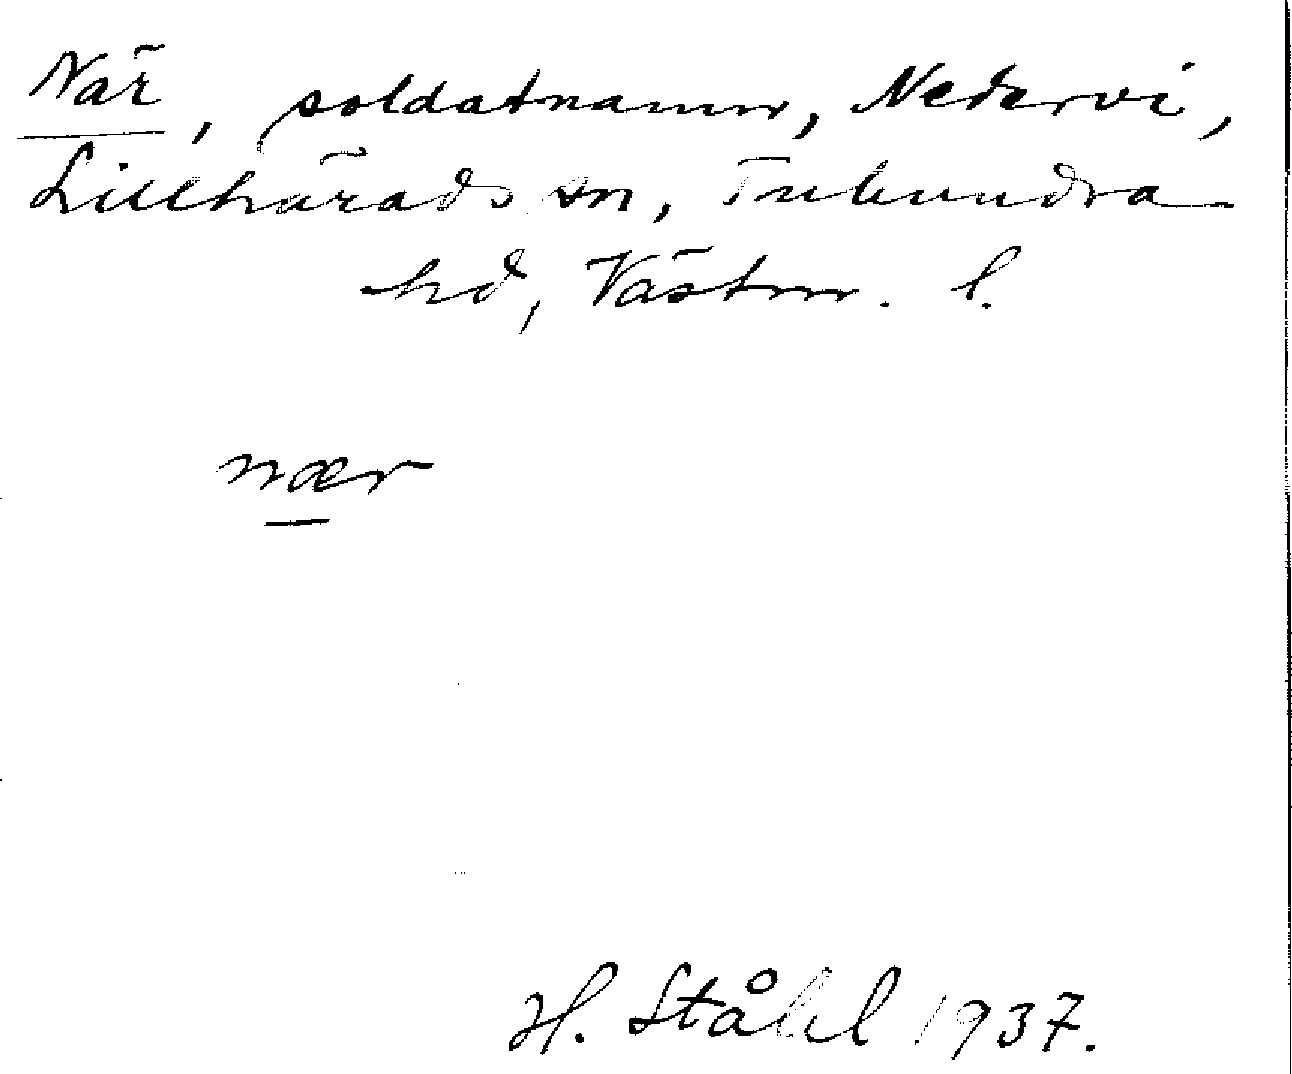 När, soldatnamn, Nedervi,
Lillhärads sn, Tuhundra
hd, Västm. l.
nær
H. Ståhl 1937.